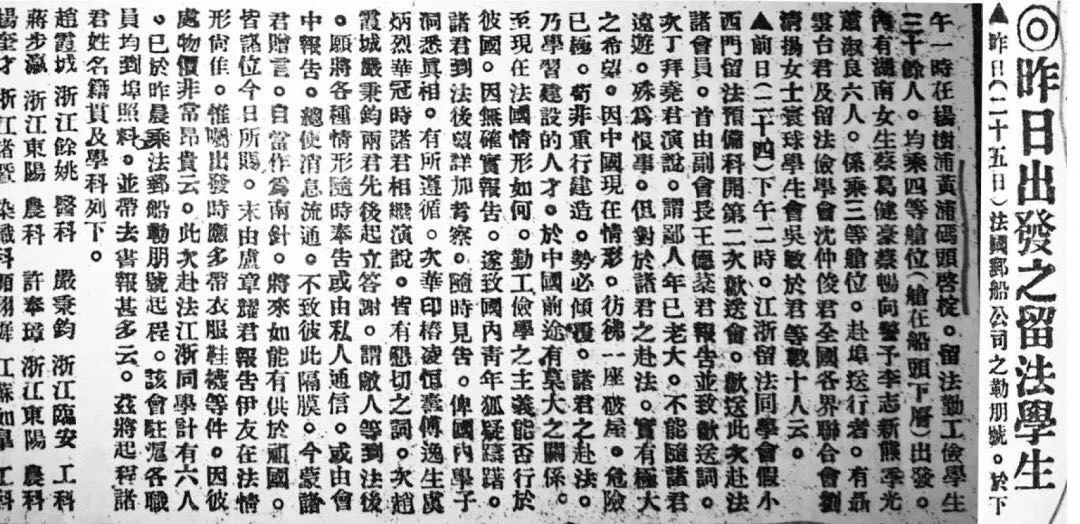 ◎昨日出發之留法學生
▲昨日(二十五日)法國郵船公司之勒朋號。於下
午一時在楊樹浦黃浦碼頭啓椗。留法勤工儉學生
三十餘人。均乘四等艙位(艙在船頭下層)出發。
內有湖南女生蔡葛健豪蔡暢向警予李志新熊季光
蕭淑良六人。係乘三等艙位。赴埠送行者。有聶
雲台君及留法儉學會沈仲俊君全國各界聯合會劉
清揚女士寰球學生會吳敏於君等數十人云。
▲前日(二十四)下午二時。江浙留法同學會假小
西門留法預備科開第二次歡送會。歡送此次赴法
諸會員。首由副會長王德棻君報告並致歡送詞。
次丁拜堯君演說。謂鄙人年已老大。不能隨諸君
遠遊。殊為恨事。但對於諸君之赴法。實有極大
之希望。因中國現在情形。彷彿一座破屋。危險
已極。苟非重行建造。勢必傾覆。諸君之赴法。
乃學習建設的人才。於中國前途有莫大之關係。
至現在法國情形如何。勤工儉學之主義能否行於
彼國。因無確實報告。遂致國內青年狐疑躊躇。
諸君到法後望詳加考察。隨時見告。俾國內學子
洞悉眞相。有所遵循。次華印椿凌恒燾傅逸生虞
炳烈華冠時諸君相繼演說。皆有懇切之詞。次趙
霞城嚴秉鈞兩君先後起立答謝。謂敝人等到法後
。願將各種情形隨時奉告或由私人通信。或由會
中報告。總使消息流通。不致彼此隔膜。今蒙諸
君贈言。自當作為南針。將來如能有供於祖國。
皆諸位今日所賜。末由盧章耀君報告伊友在法情
形尚佳。惟囑出發時應多帶衣服鞋襪等件。因彼
處物價非常昂貴云。此次赴法江浙同學計有六人
。已於昨晨乘法郵船勒朋號起程。該會駐滬各職
員均到埠照料。並帶去書報甚多云。茲將起程諸
君姓名籍貫及學科列下。
趙霞城 浙江餘姚 醫科 嚴秉鈞 浙江臨安 工科
蔣步瀛 浙江東陽 農科 許奉璋 浙江東陽 農科
楊奎才 浙江諸暨 染織科 江蘇如皋 工科